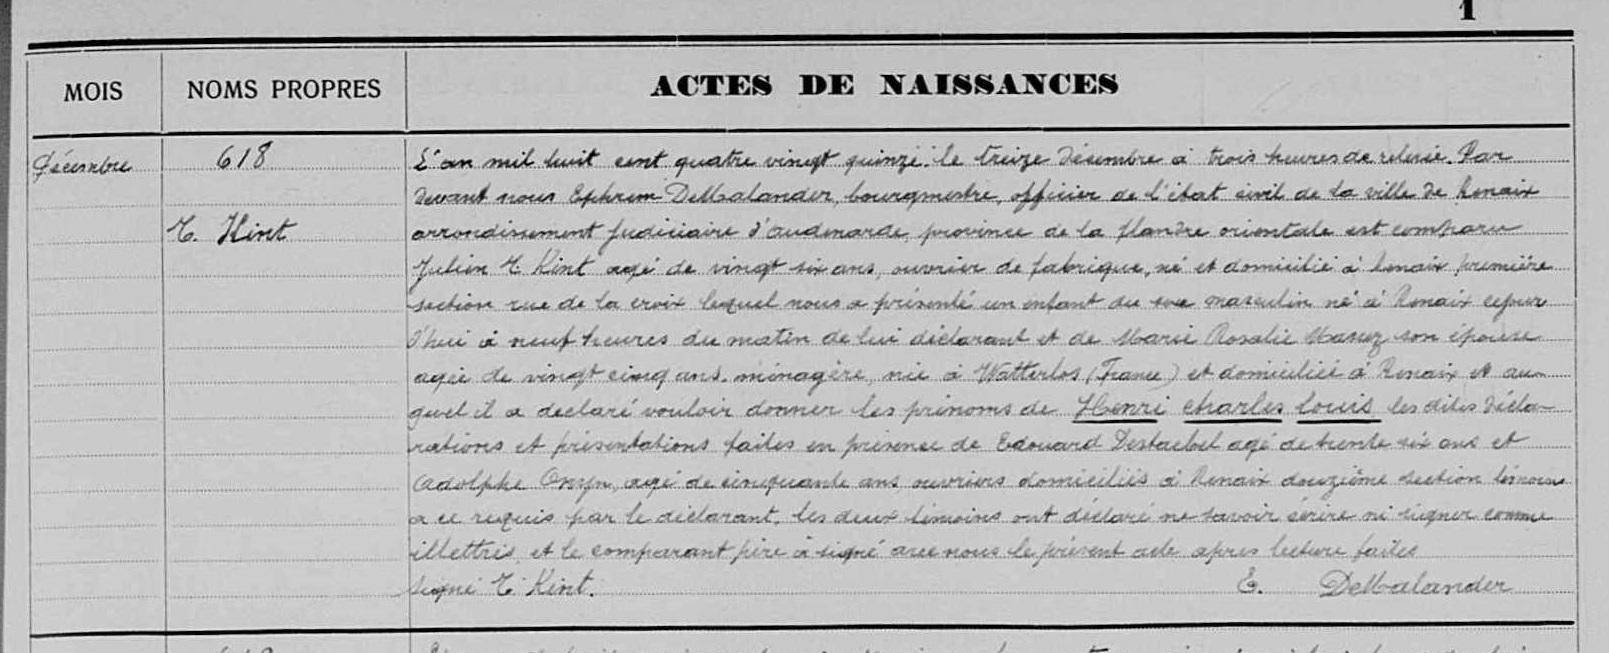 1
MOIS NOMS PROPRES ACTES DE NAISSANCES
Décembre 618 L'an mil huit cent quatre vingt quinze le treize décembre à trois heures de relevée. Par
devant nous Ephrem DeMalander, bourgmestre, officier de l'état civil de la ville de Renaix
T. Kint arrondissement judiciaire d'audenarde, province de la flandre orientale est comparu
Julien T Kint agé de vingt six ans, ouvrier de fabrique, né et domicilié à Renaix première
section rue de la croix lequel nous a présenté un enfant du sexe masculin né à Renaix cejour
d'hui à neuf heures du matin de lui déclarant et de Marie Rosalie son épouse
agée de vingt cinq ans, ménagère, née à Watterlos (France) et domiciliée à Renaix et au-
quel il a declaré vouloir donner les prénoms de Henri charles louis les dites décla-
rations et présentations faites en présence de Edouard agé de trente six ans et
adolphe agé de cinquante ans, ouvriers domiciliés à Renaix douzième section témoins
a ce requis par le déclarant, les deux témoins ont déclaré ne savoir écrire ni signer comme
illettrés, et le comparant père à signé avec nous le présent acte apres lecture faites
signé T Kint. E. DeMalander